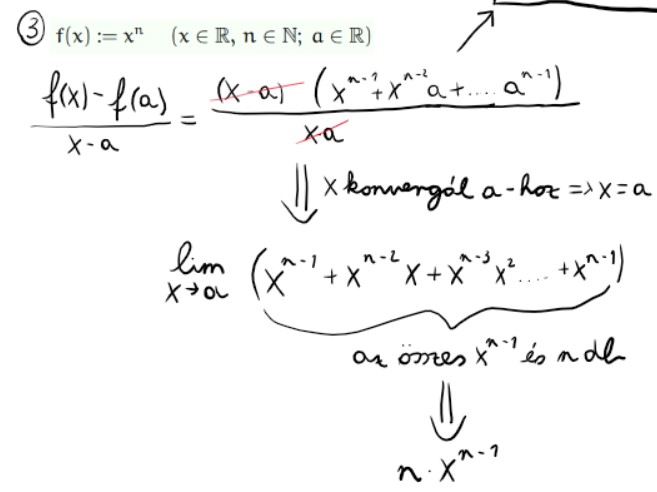 ③ f(x) := xⁿ (x ∈ ℝ, n ∈ ℕ; a ∈ ℝ)
(f(x) - f(a)) / (x - a) = ((x-a) (xⁿ⁻¹ + xⁿ⁻²a + .... aⁿ⁻¹)) / (x-a)
⇓ x konvergál a-hoz => x = a
lim x→a (xⁿ⁻¹ + xⁿ⁻² x + xⁿ⁻³ x² .... + xⁿ⁻¹)
az összes xⁿ⁻¹ és n db
⇓
n · xⁿ⁻¹